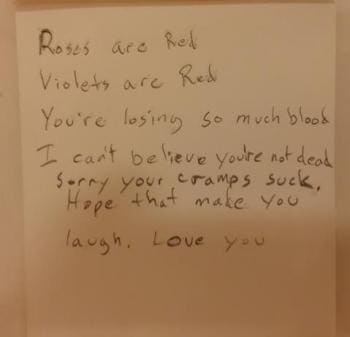 Roses are Red
Violets are Red
You're losing so much blood
I can't believe you're not dead
Sorry your cramps suck.
Hope that make you
laugh. Love you